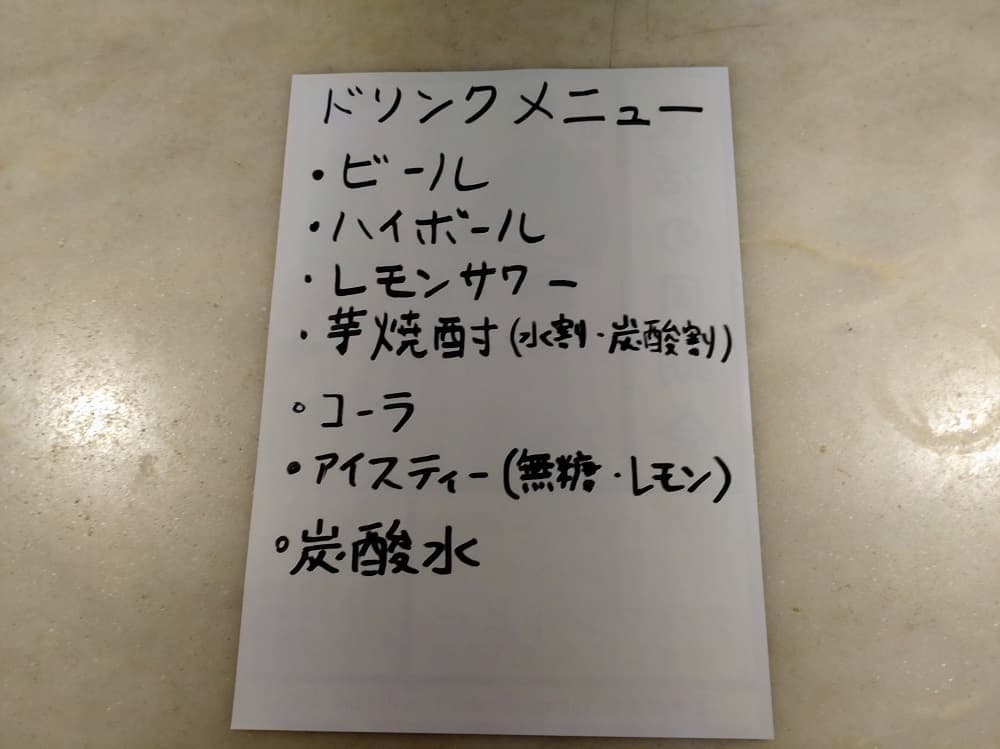 ドリンクメニュー
・ビール
・ハイボール
・レモンサワー
・芋焼酎(水割・炭酸割)
・コーラ
・アイスティー(無糖・レモン)
・炭酸水